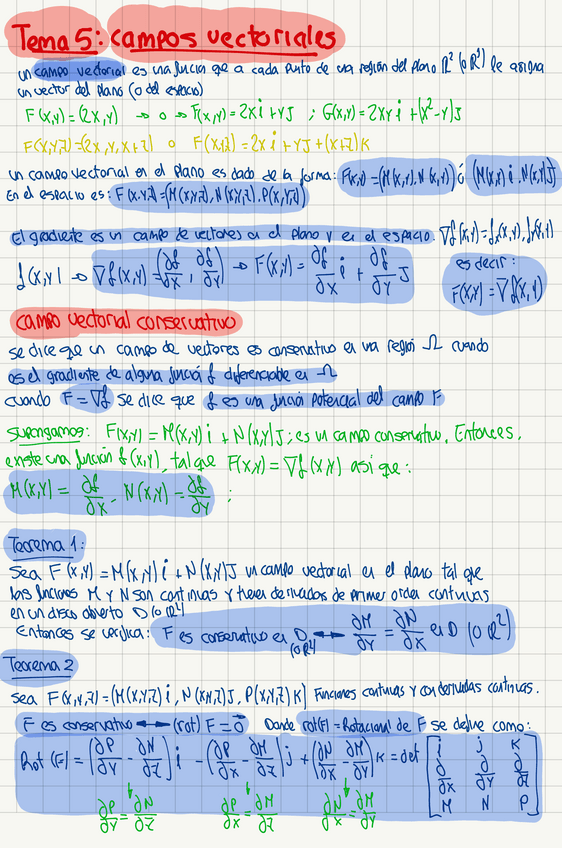 Tema 5: campos vectoriales
un campo vectorial es una función que a cada punto de una región del plano ℝ² (o ℝ³) le asigna
un vector del plano (o del espacio)
F(x,y)=(2x,y) → o → F(x,y)=2xi+yJ ; G(x,y)=2xyi+(x²-y)J
F(x,y,z)=(2x,y,x+z) o F(x,y,z)=2xi+yJ+(x+z)K
un campo vectorial en el plano es dado de la forma: F(x,y)=(M(x,y),N(x,y)) ó (M(x,y)i,N(x,y)J)
En el espacio es: F(x,y,z)=(M(x,y,z),N(x,y,z),P(x,y,z))
El gradiente es un campo de vectores en el plano y en el espacio: ∇f(x,y)=fx(x,y),fy(x,y)
f(x,y) → ∇f(x,y)=(∂f/∂x, ∂f/∂y) → F(x,y)=∂f/∂x i + ∂f/∂y J
es decir:
F(x,y)=∇f(x,y)
campo vectorial conservativo
se dice que un campo de vectores es conservativo en una región Ω cuando
es el gradiente de alguna función f diferenciable en Ω
cuando F=∇f se dice que f es una función potencial del campo F
supongamos: F(x,y)=M(x,y)i+N(x,y)J; es un campo conservativo. Entonces,
existe una función f(x,y), tal que F(x,y)=∇f(x,y) así que:
M(x,y)=∂f/∂x, N(x,y)=∂f/∂y ;
Teorema 1:
Sea F(x,y)=M(x,y)i+N(x,y)J un campo vectorial en el plano tal que
las funciones M y N son continuas y tienen derivadas de primer orden continuas
en un disco abierto D (o ℝ²)
Entonces se verifica: F es conservativo en D (o ℝ²) ↔ ∂M/∂y=∂N/∂x en D (o ℝ²)
Teorema 2
sea F(x,y,z)=(M(x,y,z)i,N(x,y,z)J,P(x,y,z)K) Funciones continuas y con derivadas continuas.
F es conservativo ↔ (rot) F=0⃗ Donde rot(F)=Rotacional de F se define como:
Rot(F)=(∂P/∂y-∂N/∂z)i-(∂P/∂x-∂M/∂z)j+(∂N/∂x-∂M/∂y)K=det[i j K
∂/∂x ∂/∂y ∂/∂z
M N P]
∂P/∂y=∂N/∂z ∂P/∂x=∂M/∂z ∂N/∂x=∂M/∂y